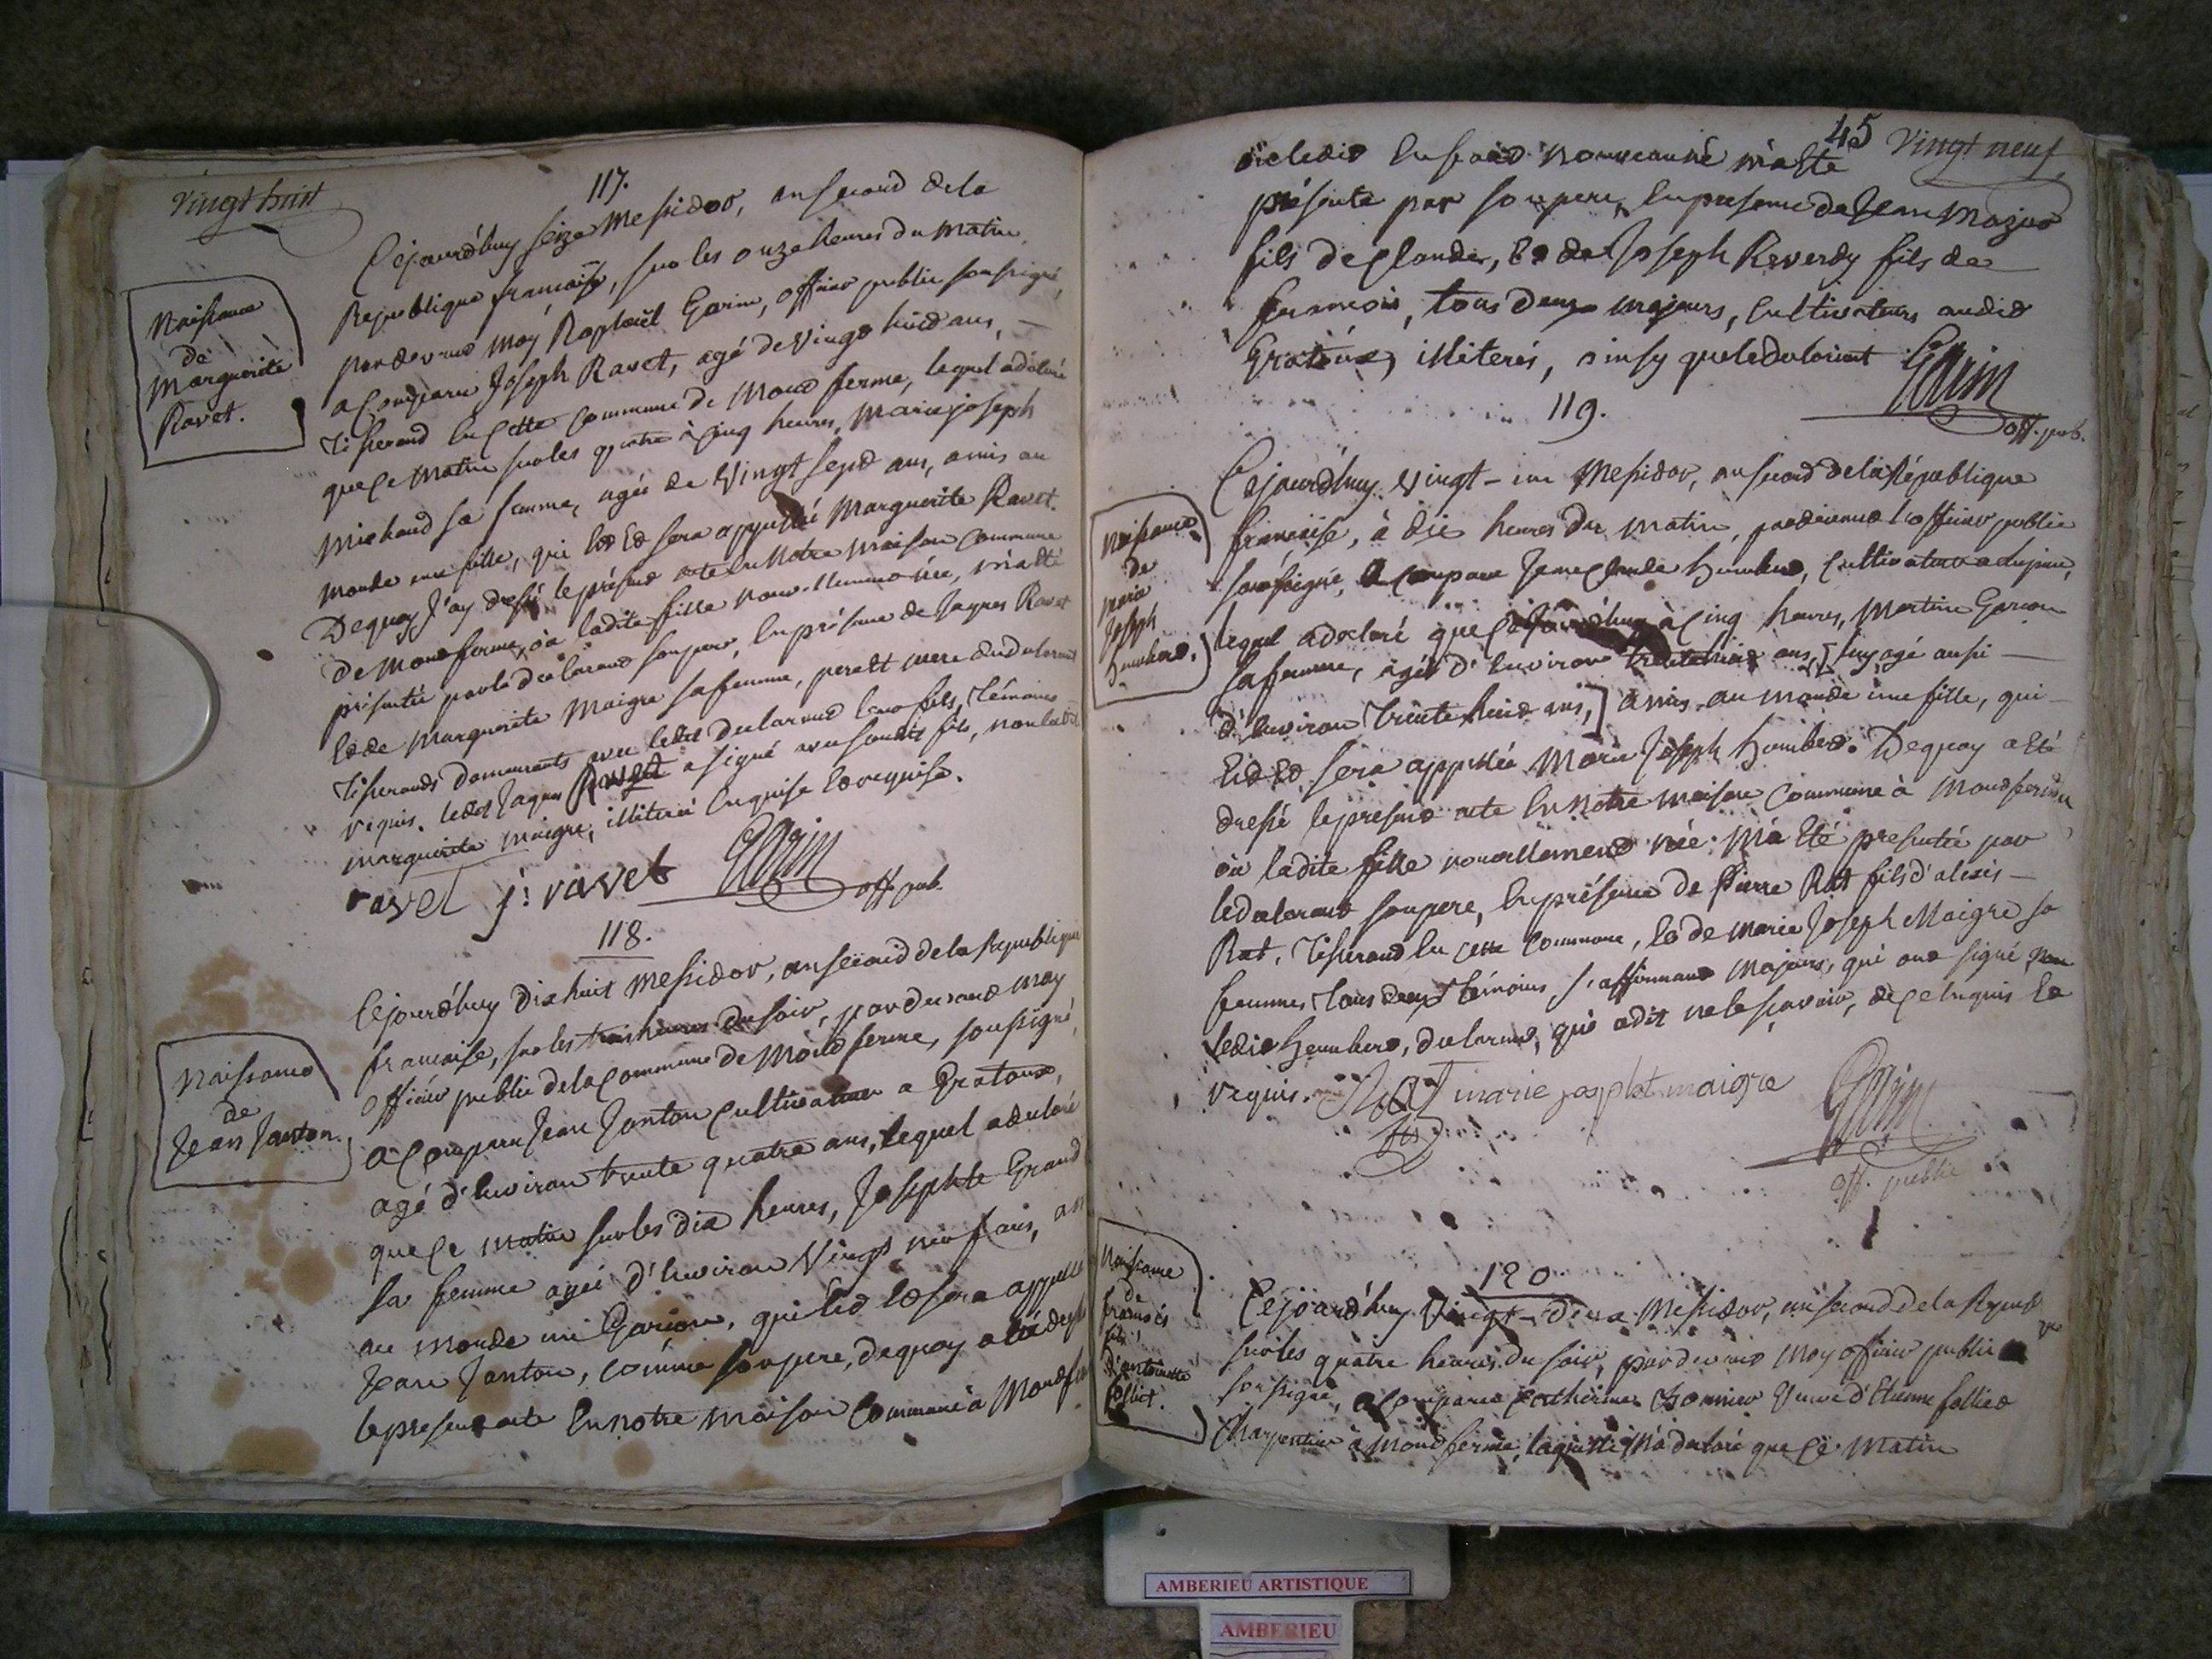 Vingt huit
117.
Cejourd'huy seize Messidor, an second de la
Republique francaise, sur les onze heures du matin,
pardevant moy Raphaël Garin, officier public soussigné,
a comparu Joseph Ravet, agé de vingt huit ans,
Tisserand en cette commune de Mont ferme, lequel a déclaré
que ce matin sur les quatre à cinq heures, Marie joseph
Michaud sa femme, agée de vingt sept ans, a mis au
monde une fille, qui est et sera appellée Marguerite Ravet.
Dequoy j'ay dressé le présent acte en notre maison commune
de Montferme, où ladite fille nouvellement née, m'a été
présentée par le déclarant son pere, en présence de Jaques Ravet
et de Marguerite Maigre sa femme, pere et mere dud declarant
Tisserands demeurants avec ledit declarant leur fils, témoins
requis. ledit Jaques Ravet a signé avec son dit fils, non ladite
marguerite maigre, illiterée enquise et requise.
ravet j: ravet Garin
off. pub.
Naissance
de
Marguerite
Ravet.
118.
Cejourd'huy dix huit Messidor, an second de la Republique
francaise, sur les trois heures du soir, pardevant moy
officier public de la commune de Mont ferme, soussigné,
a comparu Jean Janton cultivateur a Gratoux,
agé d'environ trente quatre ans, lequel a declaré
que ce matin sur les dix heures, Josephte Grand
sa femme agée d'environ vingt neuf ans, a
au monde un Garçon, qui est et sera appellé
Jean Janton, comme son pere, dequoy a été dressé
le present acte en notre maison commune à Montf
Naissance
de
Jean Janton.
45 Vingt neuf
où ledit enfant nouveau né m'a été
présenté par son pere, en presence de Jean Mazuir
fils de Claude, et de Joseph Reverdy fils de
francois, tous deux majeurs, cultivateurs audit
Gratoux, illiterés, ainsy que le declarant Garin
off. pub.
119.
Cejourd'huy vingt-un Messidor, an second de la République
francaise, à dix heures du matin, pardevant l'officier public
soussigné, a comparu Jean Claude humbert, cultivateur
lequel a declaré que cejourd'huy à cinq heures, Martine Garion
sa femme, agée d'environ trente huit ans, [luy agé aussi
d'environ trente huit ans,] a mis au monde une fille, qui
est et sera appellée Marie Joseph humbert. Dequoy a été
dressé le présent acte en notre maison commune à Montferme
où ladite fille nouvellement née m'a été presentée par
le declarant son pere, en présence de Pierre Rat fils d'alexis
Rat, Tisserand en cette commune, et de Marie Joseph Maigre sa
femme, tous deux témoins s'affirmant majeurs, qui ont signé non
ledit humbert, declarant, qui a dit ne le sçavoir, de ce enquis et
requis. Rat marie joseph maigre Garin
off. public
Naissance
de
marie
Joseph
humbert.
120
Cejourd'huy Vingt-deux Messidor, an second de la Republique
sur les quatre heures du soir, pardevant moy officier public
soussigné, a comparu Catherine veuve d'Etienne folliet
Charpentier à Mont ferme, laquelle m'a declaré que ce matin
Naissance
de
francois
fils
d'antoinette
folliet.
AMBERIEU ARTISTIQUE
AMBERIEU